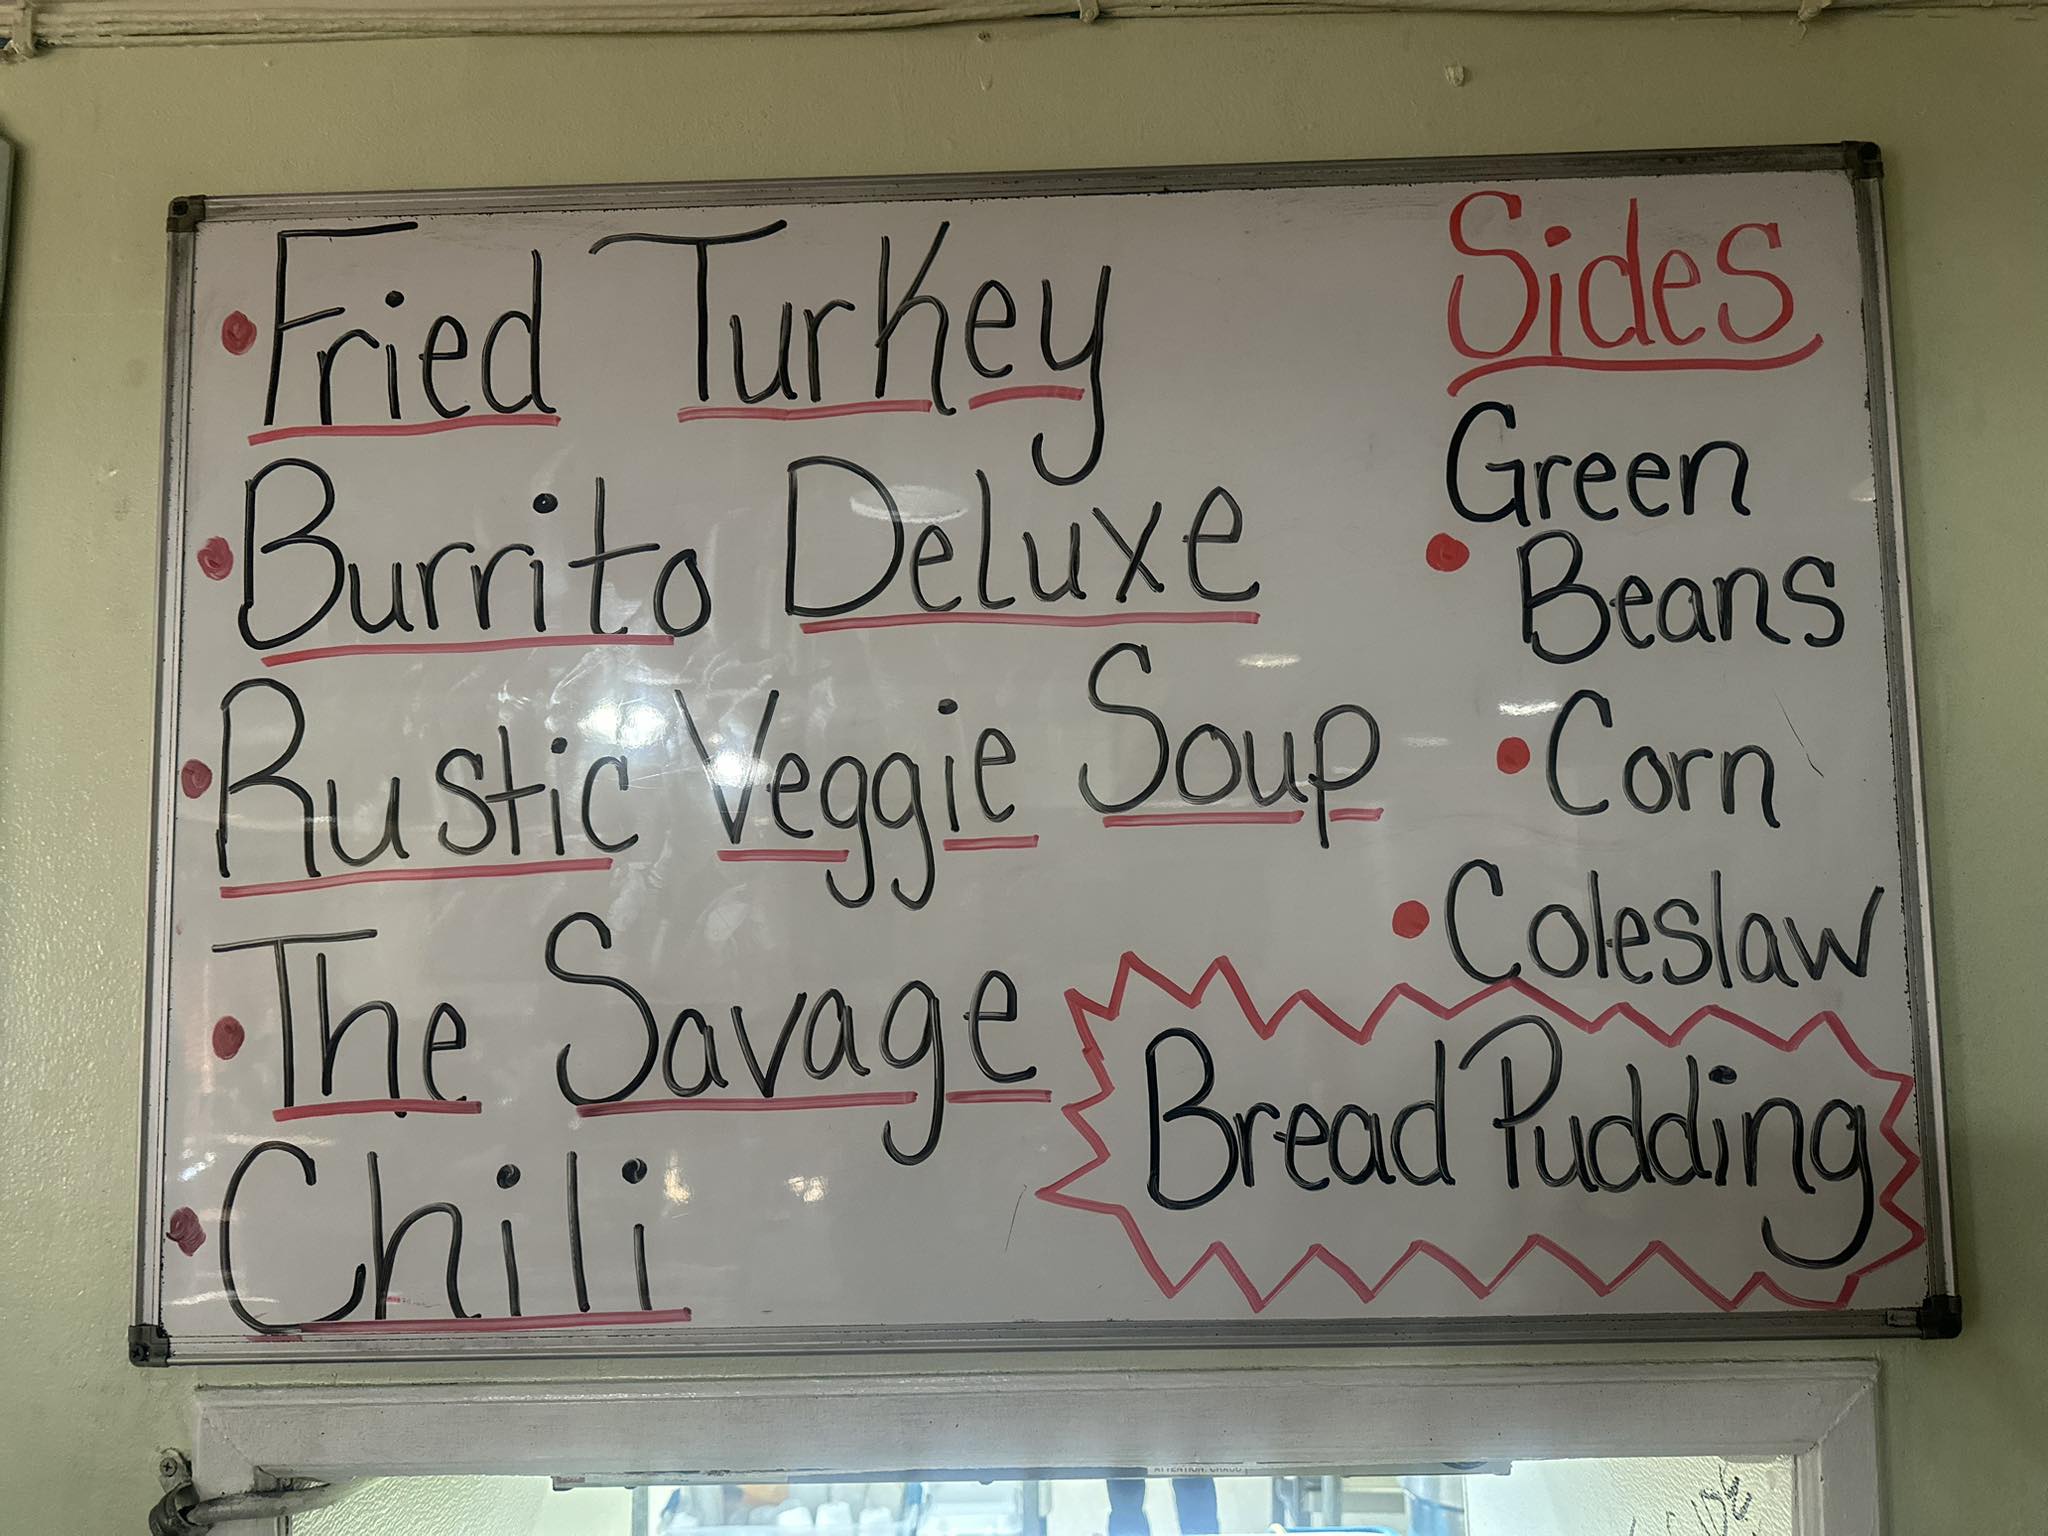 • Fried Turkey
• Burrito Deluxe
• Rustic Veggie Soup
• The Savage
• Chili
Sides
Green
• Beans
• Corn
• Coleslaw
Bread Pudding